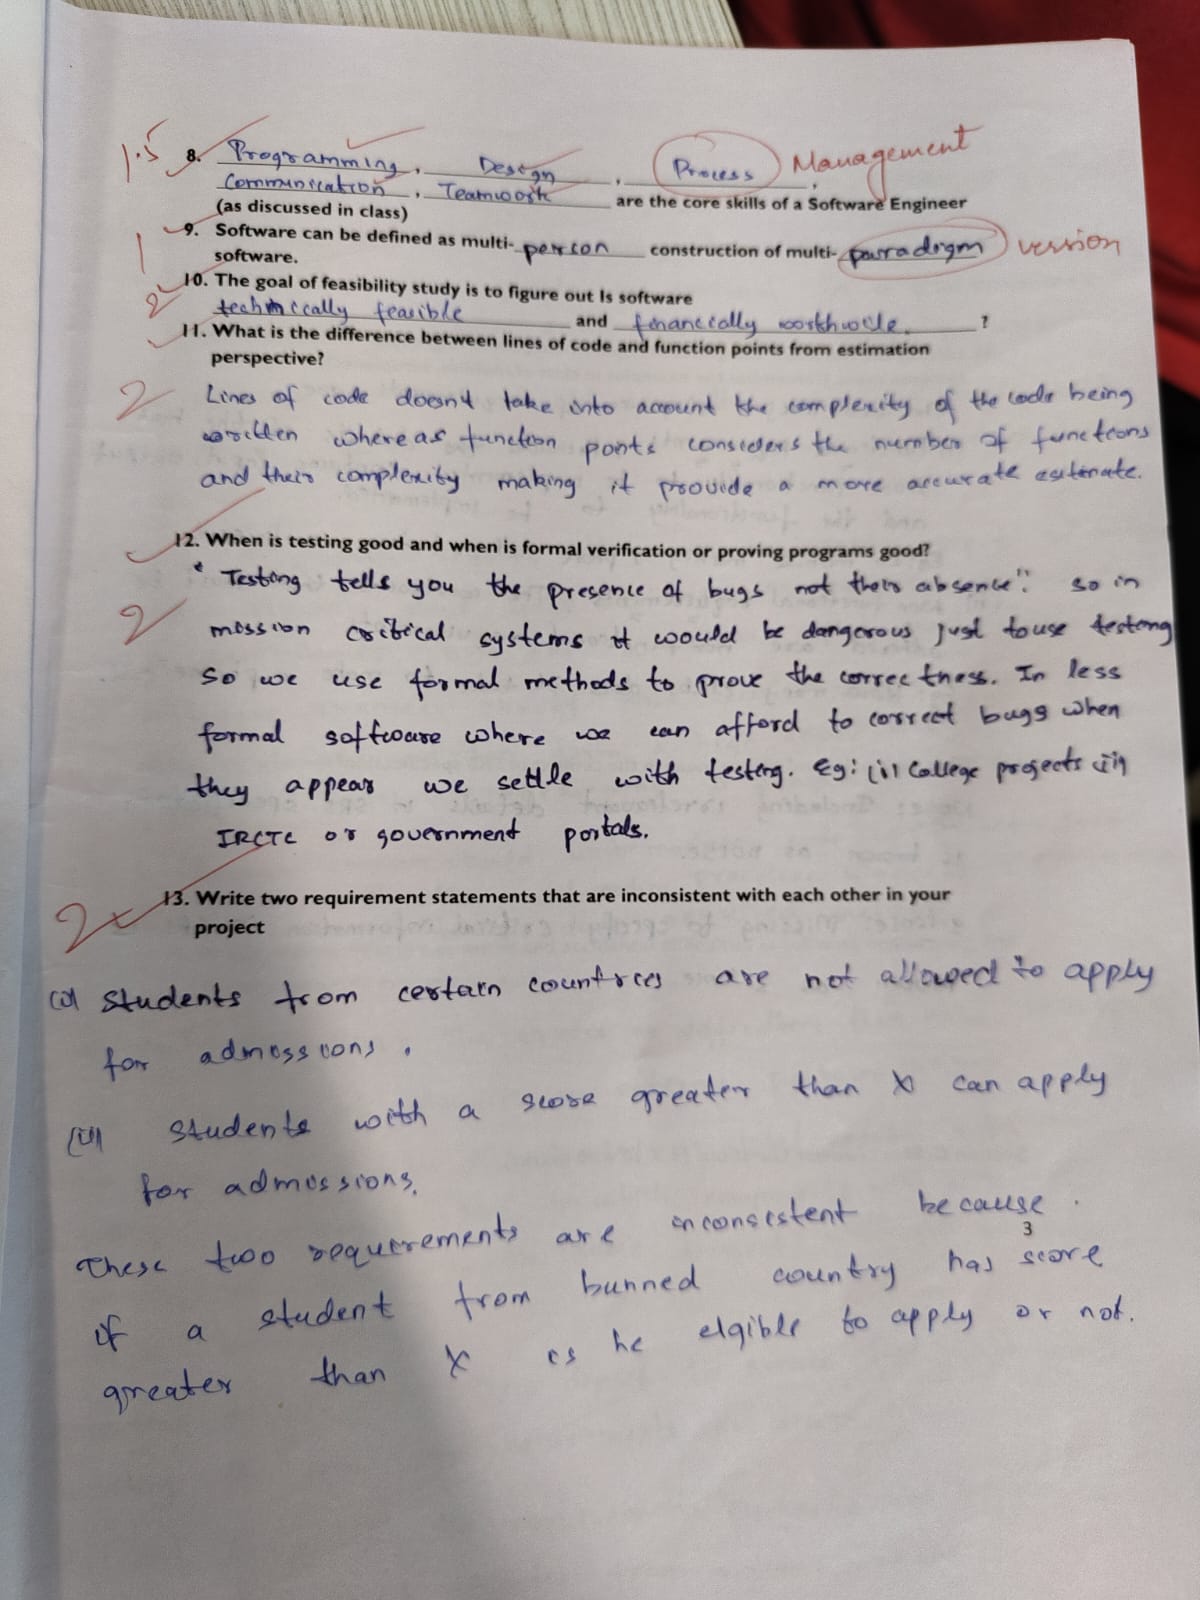 1.5 8. Programming, Design, Process, Management
Communication, Teamwork are the core skills of a Software Engineer
(as discussed in class)
1 9. Software can be defined as multi-person construction of multi-parradigm version
software.
2 10. The goal of feasibility study is to figure out Is software
technically feasible and financially worthwile. ?
11. What is the difference between lines of code and function points from estimation
perspective?
2 Lines of code doesn't take into account the complexity of the code being
written whereas function points considers the number of functions
and their complexity making it provide a more accurate estimate.
12. When is testing good and when is formal verification or proving programs good?
" Testing tells you the presence of bugs not their absence". so in
2 mission critical systems it would be dangerous just to use testing
So we use formal methods to prove the correctness. In less
formal software where we can afford to correct bugs when
they appear we settle with testing. Eg: (i) College projects (ii)
IRCTC or government portals.
2 13. Write two requirement statements that are inconsistent with each other in your
project
(i) Students from certain countries are not allowed to apply
for admissions.
(ii) Students with a score greater than X can apply
for admissions.
These two requirements are inconsistent because
3
if a student from bunned country has score
greater than X is he elgible to apply or not.